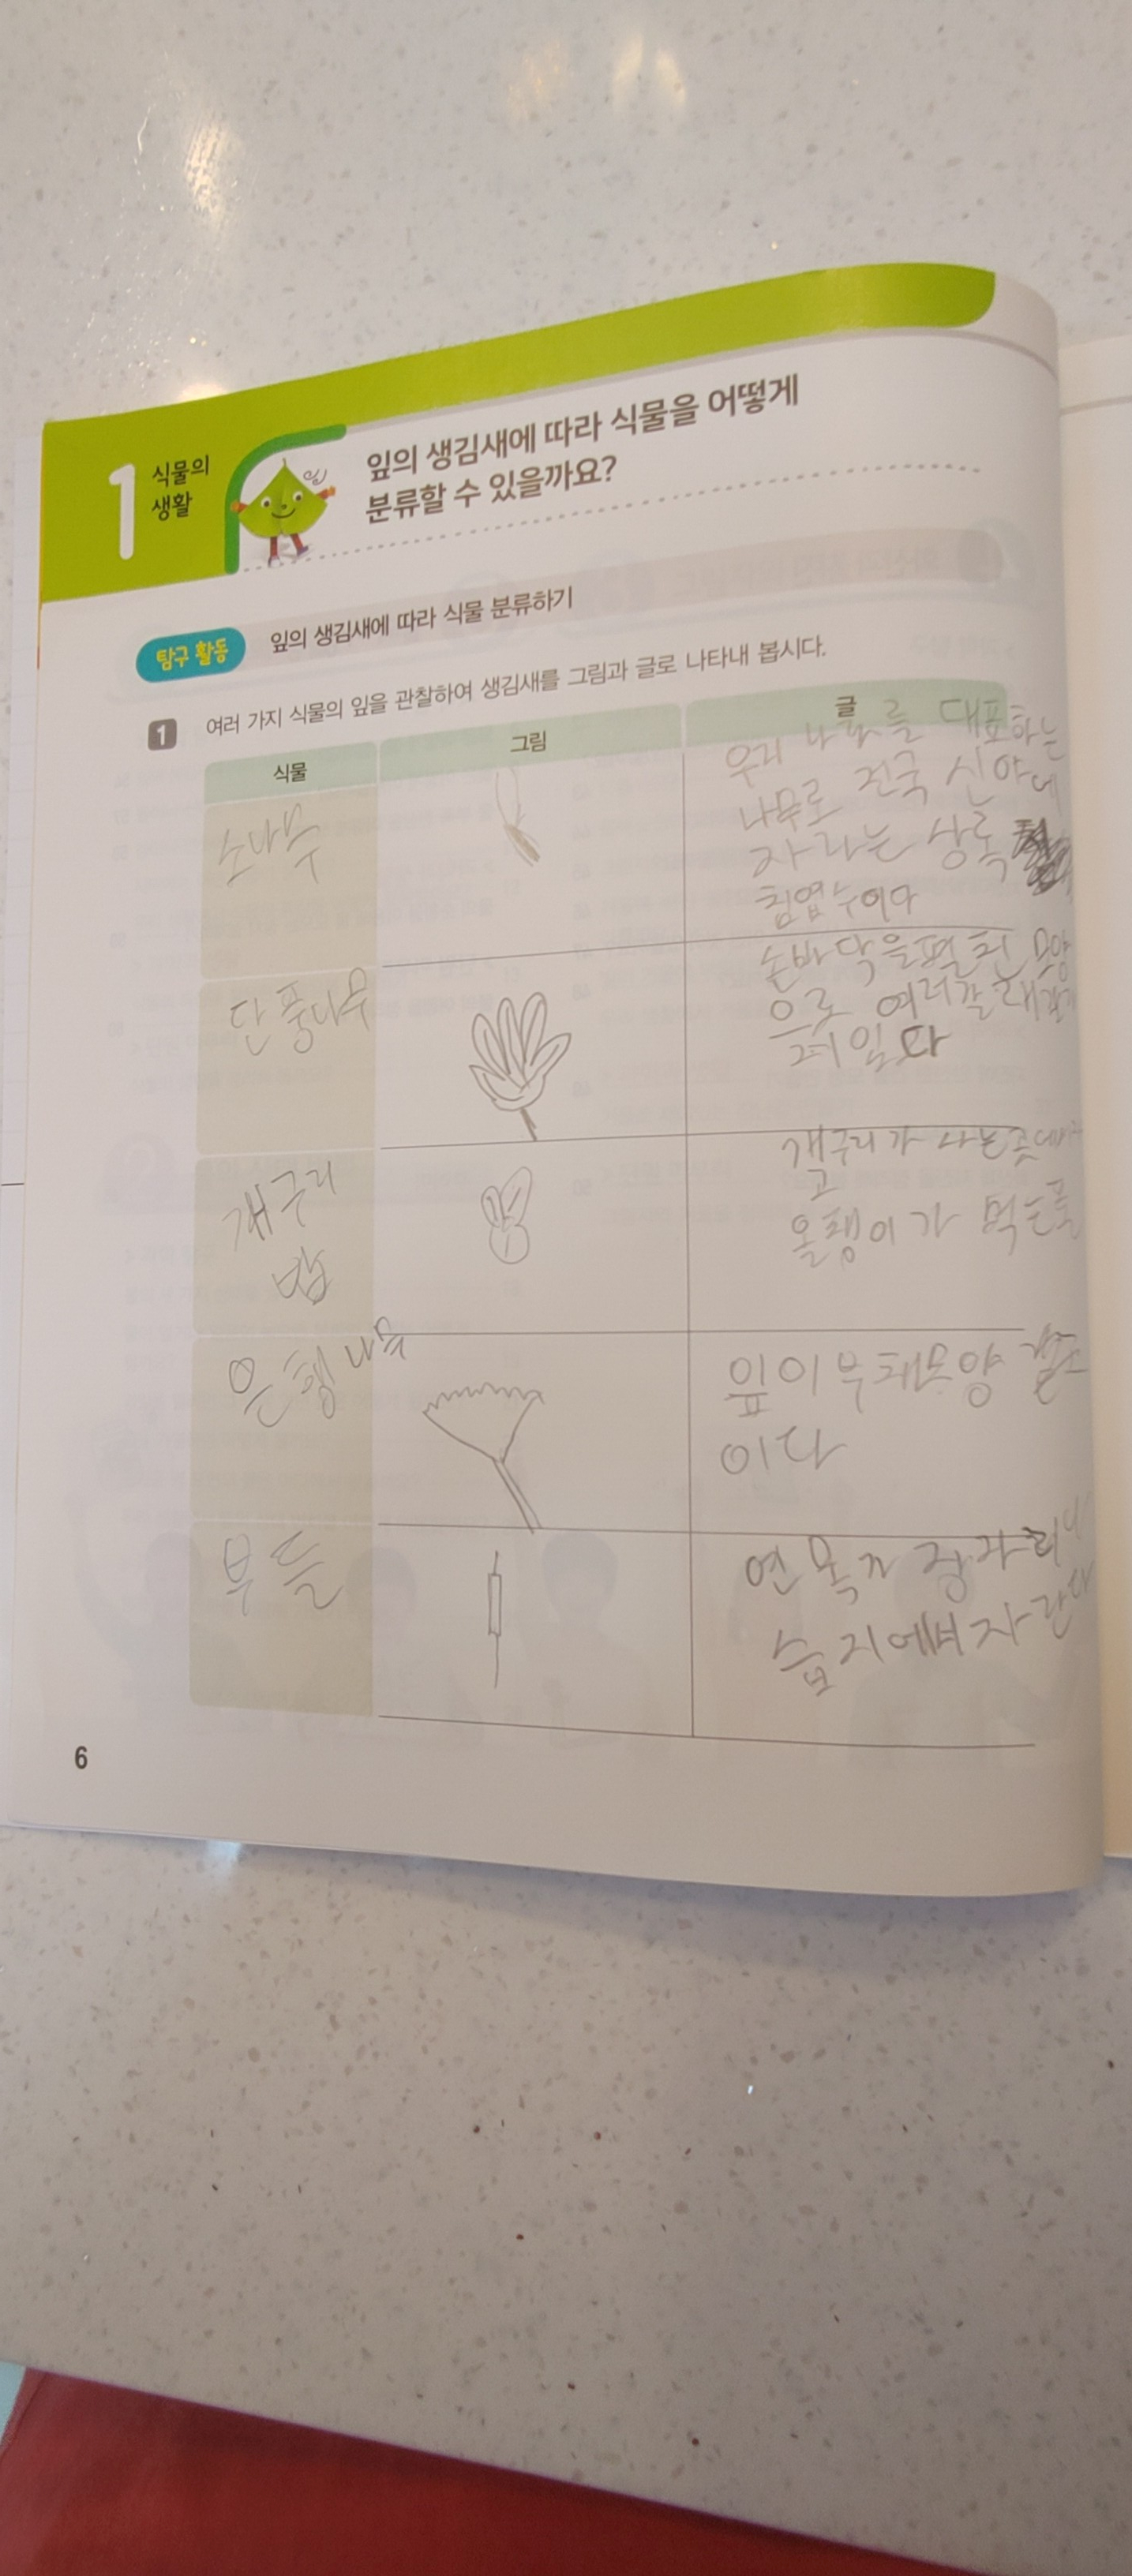 1
식물의
생활
잎의 생김새에 따라 식물을 어떻게
분류할 수 있을까요?
탐구 활동 잎의 생김새에 따라 식물 분류하기
1 여러 가지 식물의 잎을 관찰하여 생김새를 그림과 글로 나타내 봅시다.
식물 그림 글
소나무
우리 나라를 대표하는
나무로 전국 산야에
자라는 상록
침엽수이다
단풍나무
손바닥을 펼친 모양
으로 여러갈래
개구리
밥
개구리가 사는곳
고
올챙이가 먹는풀
은행나무
잎이 부채모양
이다
부들
연못가 장자리
습지에서 자란다
6